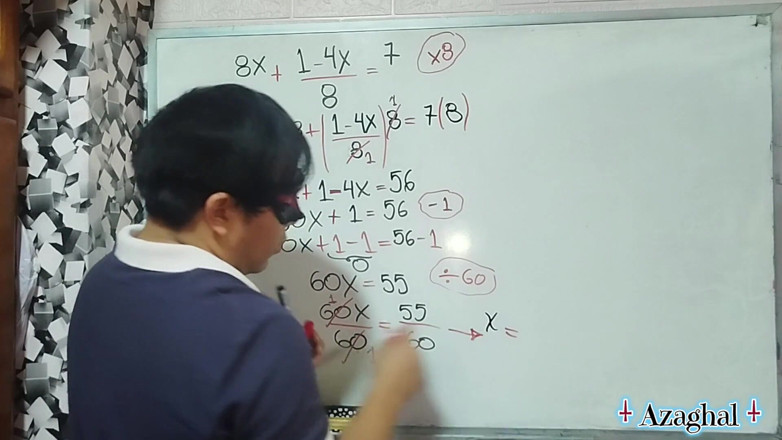 8x + 1-4x/8 = 7 ×8
+ (1-4x/8 1) 8 1 = 7(8)
+ 1-4x = 56
0x + 1 = 56 -1
0x + 1-1 = 56-1
0
60x = 55 ÷60
60x 1/60 1 = 55/60 → x =
Azaghal